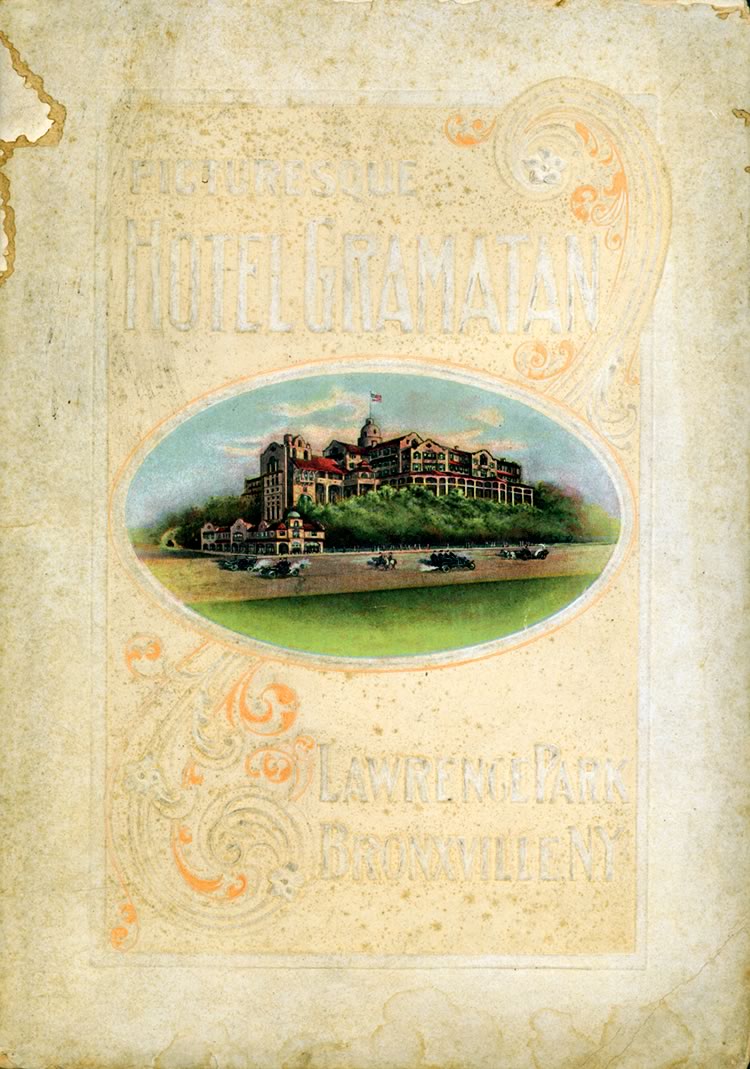 PICTURESQUE
HOTEL GRAMATAN
LAWRENCE PARK
BRONXVILLE NY